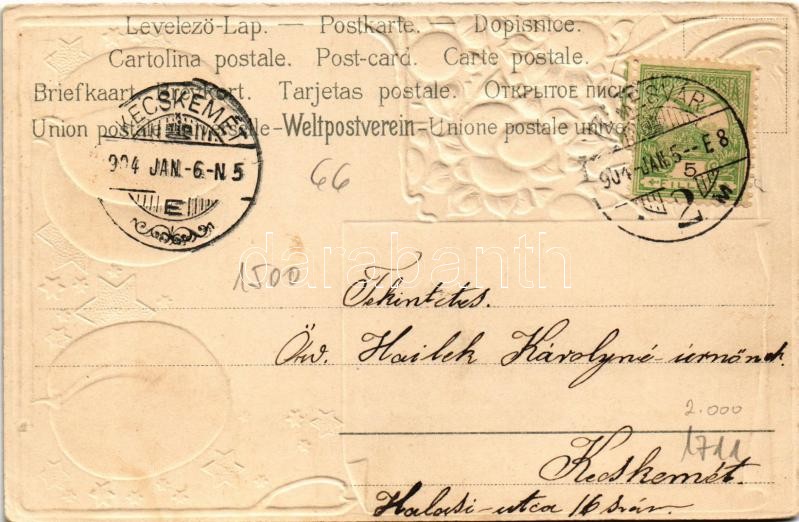 Levelező-Lap. — Postkarte. — Dopisnice.
Cartolina postale. Post-card. Carte postale.
Briefkaart. Brevkort. Tarjetas postale. Открытое
Union postale Weltpostverein-Unione postale
KECSKEMÉT
904 JAN.-6.-N 5
E
904-JAN.5--E 8
5
66
1500
Tekintetes.
Öw. Hailek Károlyné úrnőnek
2.000
1711
Kecskemét.
Halasi-utca 16 szám.
darabanth